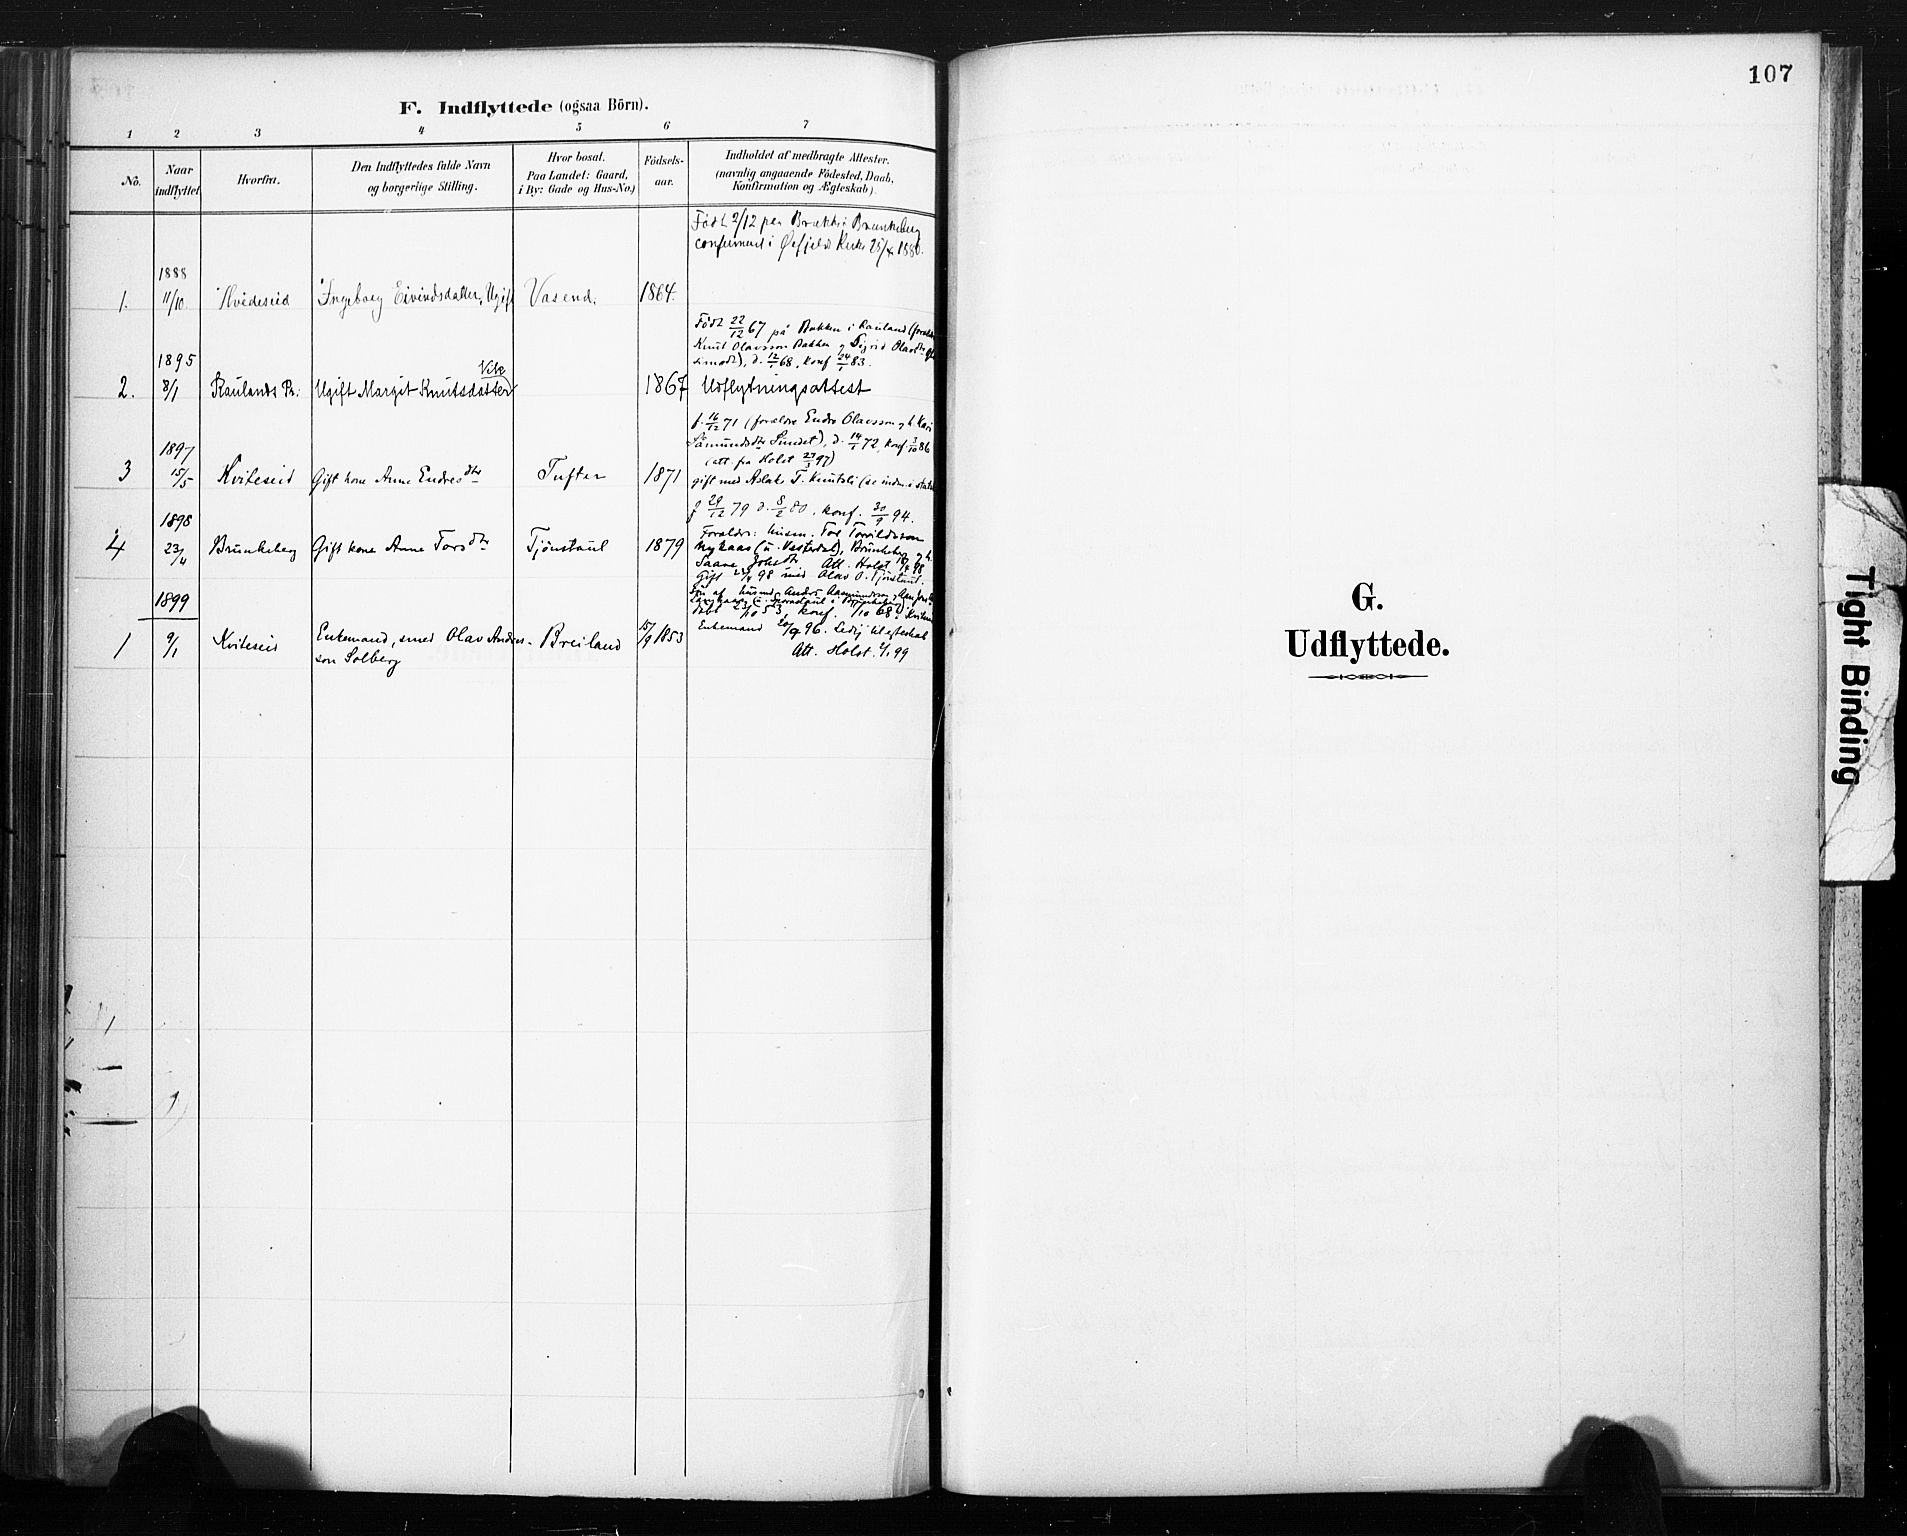 F. Indflyttede (ogsaa Börn).
1 2 3 4 5 6 7
No.
Naar
indflyttet
Hvorfra.
Den Indflyttedes fulde Navn
og borgerlige Stilling.
Hvor bosat.
Paa Landet: Gaard,
i By: Gade og Hus-No.)
Födsels-
aar.
Indholdet af medbragte Attester.
(navnlig angaaende Födested, Daab,
Konfirmation og Ægteskab).
Född 2/12 paa Brække i Brunkeberg
confirmeret i Øifjelds Kirke 25/4 1880.
1888
1. 11/10 Hvideseid Ingeborg Eivindsdatter, Ugift Vasend. 1864.
Født 22/12 67 på Bakken i Rauland (foreldre
Knut Olavsson Bakken og Sigrid Olavdtr
d. 12/1 68, konf 24/ 83.
1895
Vike
2. 8/1 Raulands Pr: Ugift Margit Knutsdatter 1867 Udflytningsattest
f. 16/12 71 (forældre Endre Olavsson og h. Kari
Såmundsdtr Sundet), d. 14/1 72, konf. 3/10 86
(att. fra Holst 27/3 97)
1897
3 15/5 Kviteseid Gift kone Anne Endresdtr Tufter 1871 gift med Aslak T. Knutsli (se indm. i stats
f 29/12 79 d. 8/2 80, konf. 30/9 94.
1898
4 23/4 Brunkeberg Gift kone Anne Torsdtr Tjönstaul 1879
Forældre: husm. Tor Torvildsson
Nykaas (u. Vasterdal), Brunkeberg og h.
Saave Johsdtr Att. Holst 18/4 98
Gift 23/4 98 med Olav O. Tjönstaul.
1899
Sön af husmd Anders Aamundsson
döbt 23/10 53, konf. /10 68 i Kviteseid
1 9/1 Kviteseid Enkemand, smed Olav Andres- Breiland 15/9 1853 Enkemand 20/9 96. Ledig til egteskab
son Solberg
Att. Holst. 2/1 99
107
G.
Udflyttede.
Tight Binding